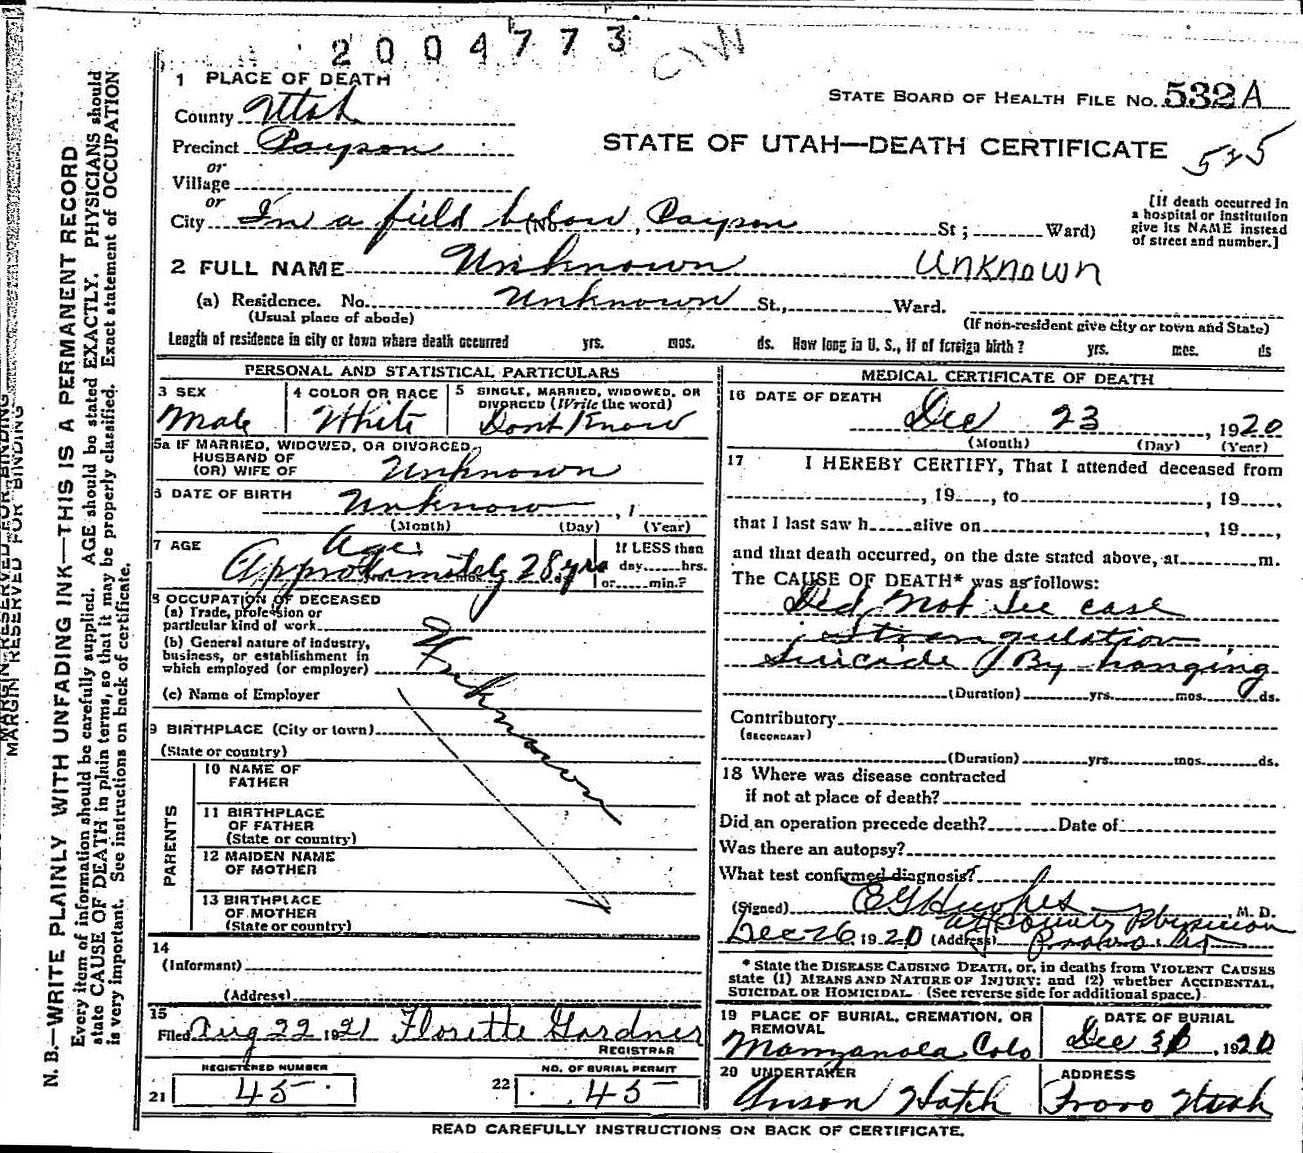 2004773
OW
1 PLACE OF DEATH
County Utah
STATE BOARD OF HEALTH FILE NO. 532 A
Precinct Payson
STATE OF UTAH—DEATH CERTIFICATE 525
or
Village
or
City In a field below Payson (No. , St ; Ward)
[If death occurred in
a hospital or institution
give its NAME instead
of street and number.]
2 FULL NAME Unknown Unknown
(a) Residence. No. Unknown St., Ward.
(Usual place of abode) (If non-resident give city or town and State)
Length of residence in city or town where death occurred yrs. mos. ds. How long in U. S., if of foreign birth? yrs. mos. ds
PERSONAL AND STATISTICAL PARTICULARS
3 SEX 4 COLOR OR RACE 5 SINGLE, MARRIED, WIDOWED, OR
DIVORCED (Write the word)
Male White Dont Know
5a IF MARRIED, WIDOWED, OR DIVORCED
HUSBAND OF
(OR) WIFE OF Unknown
6 DATE OF BIRTH Unknown , 1
(Month) (Day) (Year)
7 AGE Age If LESS than
Approximately 28 yrs day hrs.
or min.?
8 OCCUPATION OF DECEASED
(a) Trade, profession or
particular kind of work
(b) General nature of industry,
business, or establishment in
which employed (or employer)
Unknown
(c) Name of Employer
9 BIRTHPLACE (City or town)
(State or country)
PARENTS
10 NAME OF
FATHER
11 BIRTHPLACE
OF FATHER
(State or country)
12 MAIDEN NAME
OF MOTHER
13 BIRTHPLACE
OF MOTHER
(State or country)
14
(Informant)
(Address)
15
Filed Aug 22 1921 Florette Gardner
REGISTRAR
REGISTERED NUMBER NO. OF BURIAL PERMIT
21 45 22 45
MEDICAL CERTIFICATE OF DEATH
16 DATE OF DEATH
Dec 23 , 1920
(Month) (Day) (Year)
17 I HEREBY CERTIFY, That I attended deceased from
, 19 , to , 19 ,
that I last saw h alive on 19 ,
and that death occurred, on the date stated above, at m.
The CAUSE OF DEATH* was as follows:
Did not see case
Strangulation
Suicide By hanging
(Duration) yrs. mos. ds.
Contributory
(SECONDARY)
(Duration) yrs. mos. ds.
18 Where was disease contracted
if not at place of death?
Did an operation precede death? Date of
Was there an autopsy?
What test confirmed diagnosis?
(Signed) E G Hughes , M. D.
County Physician
Dec 26 1920 (Address) Provo Ut
* State the DISEASE CAUSING DEATH, or, in deaths from VIOLENT CAUSES
state (1) MEANS AND NATURE OF INJURY; and (2) whether ACCIDENTAL,
SUICIDAL OR HOMICIDAL. (See reverse side for additional space.)
19 PLACE OF BURIAL, CREMATION, OR
REMOVAL
DATE OF BURIAL
Manzanola Colo Dec , 1920
20 UNDERTAKER ADDRESS
Anson Hatch Provo Utah
READ CAREFULLY INSTRUCTIONS ON BACK OF CERTIFICATE.
MARGIN RESERVED FOR BINDING
MARGIN RESERVED FOR BINDING
N. B.—WRITE PLAINLY WITH UNFADING INK—THIS IS A PERMANENT RECORD
Every item of information should be carefully supplied. AGE should be stated EXACTLY. PHYSICIANS should
state CAUSE OF DEATH in plain terms, so that it may be properly classified. Exact statement of OCCUPATION
is very important. See instructions on back of certificate.